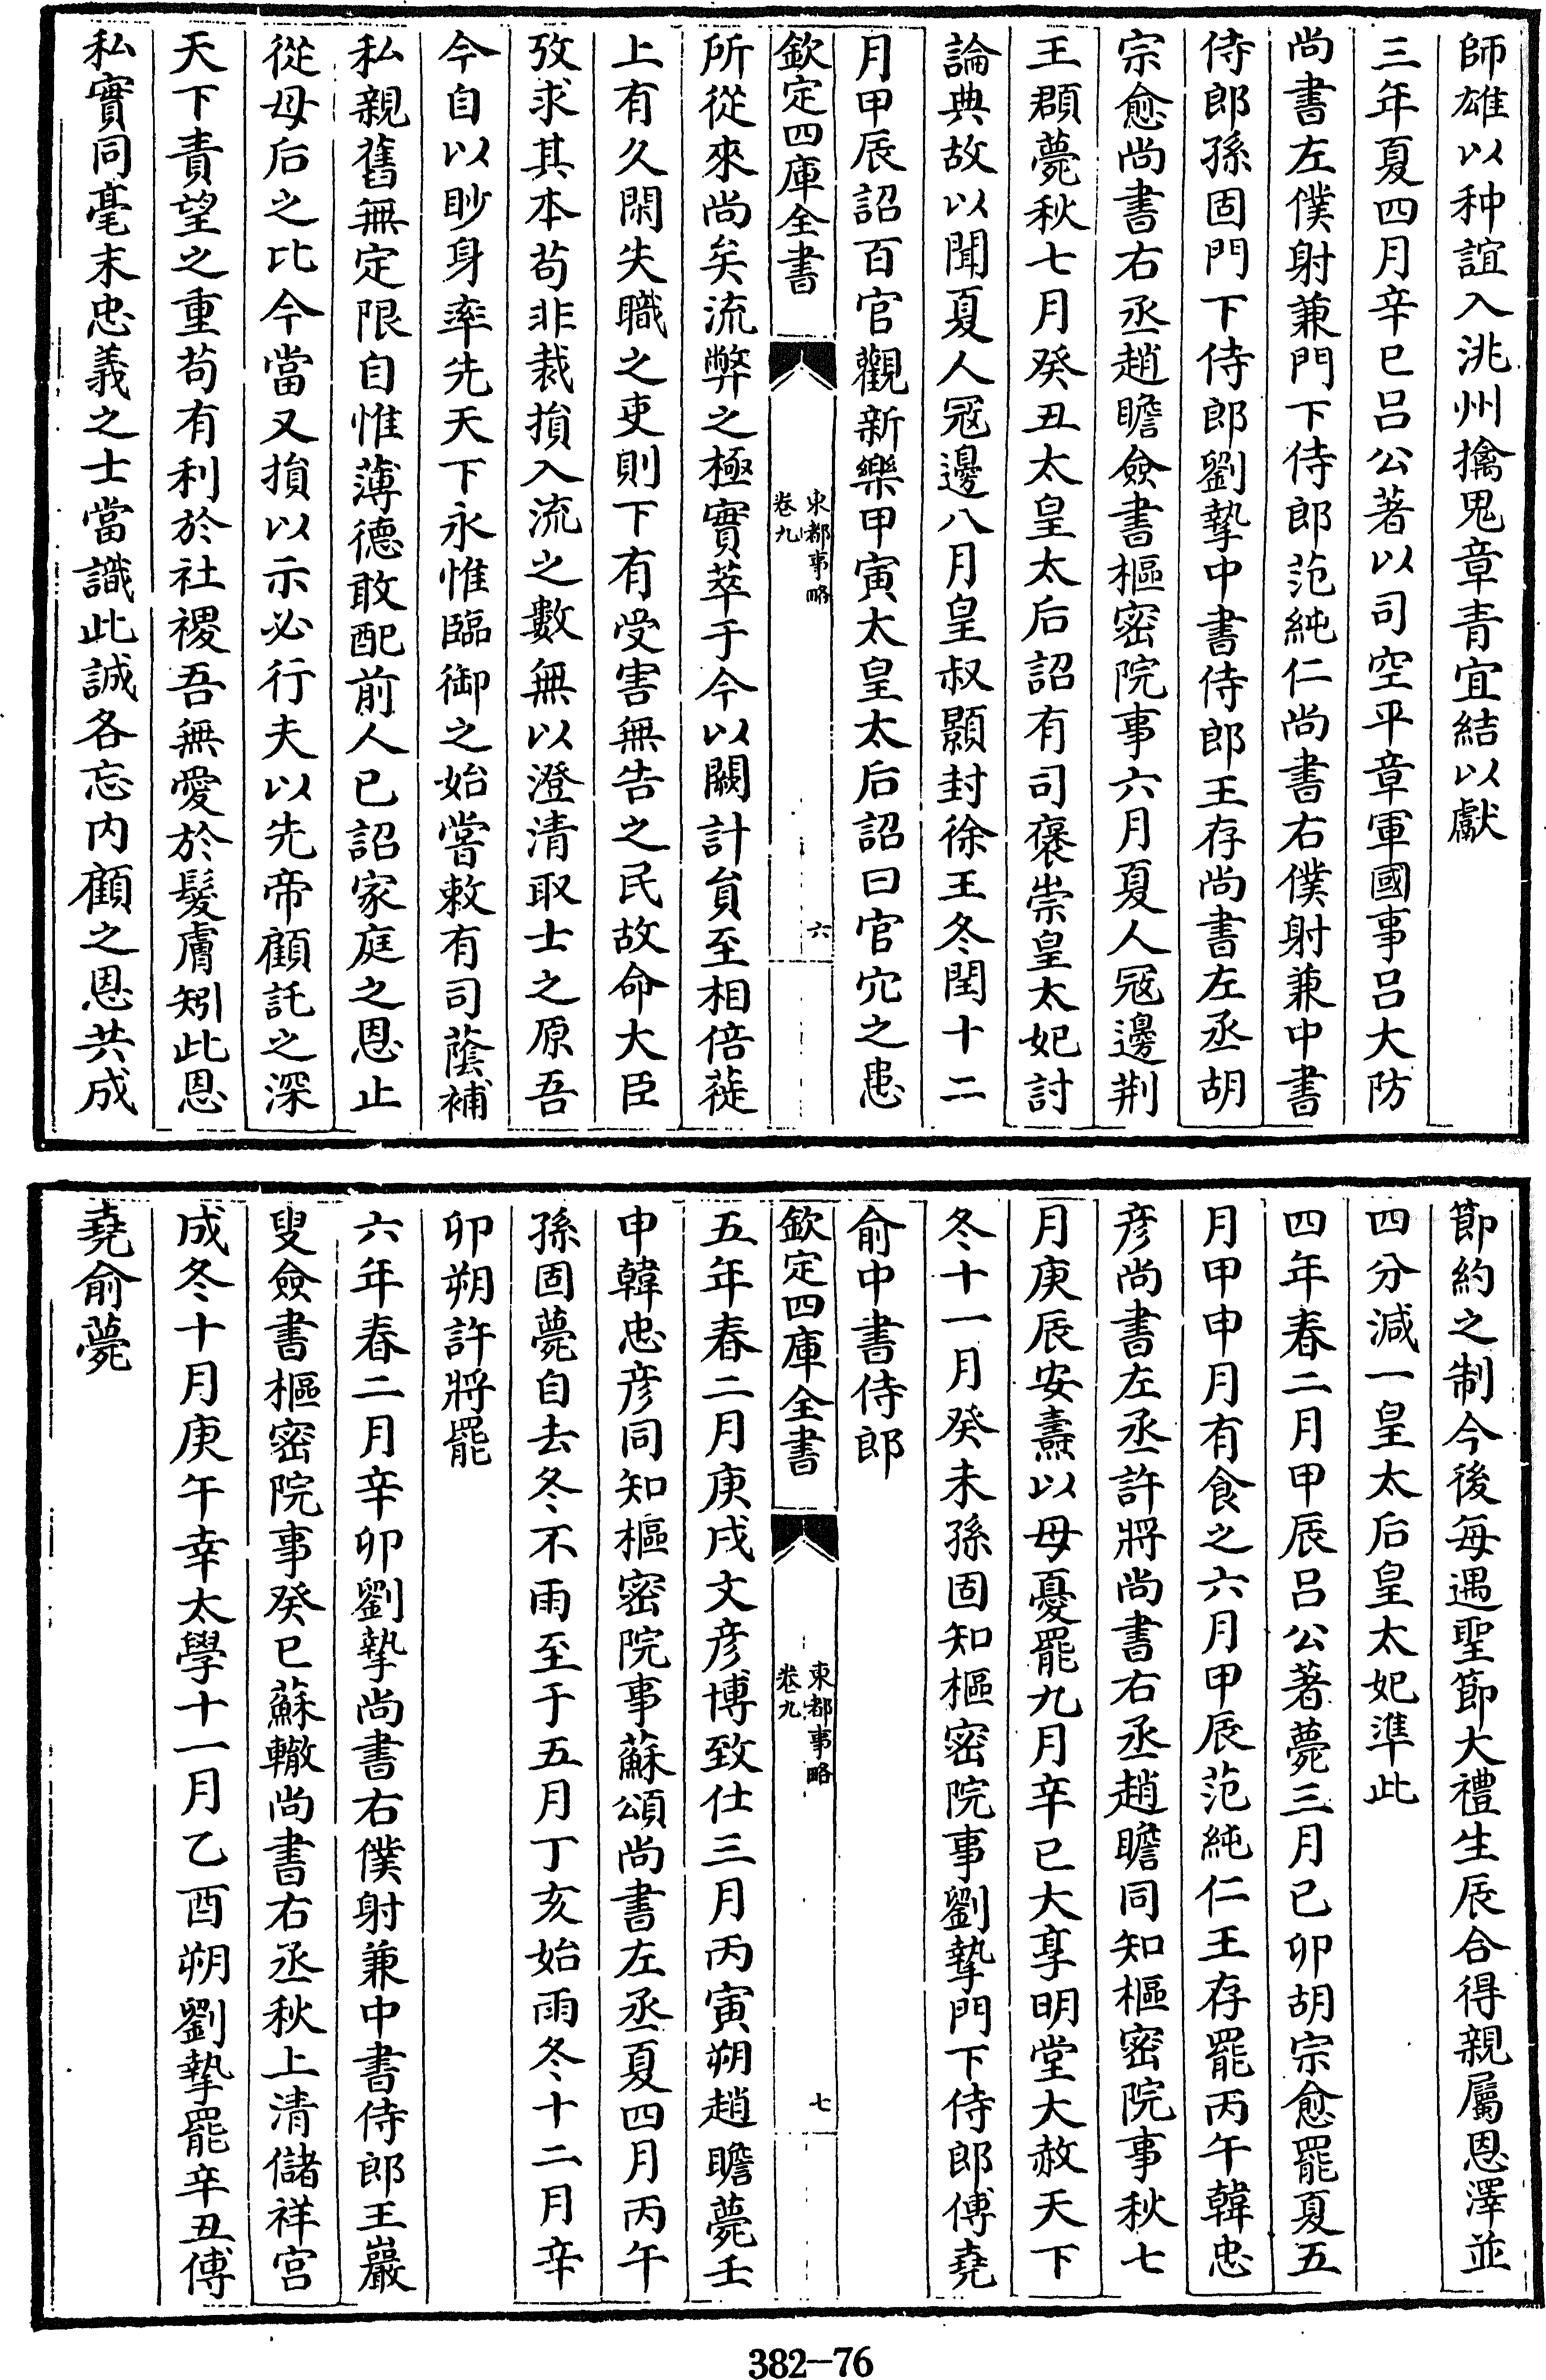 師雄以种誼入洮州擒鬼章青宜結以獻
三年夏四月辛巳呂公著以司空平章軍國事呂大防
尚書左僕射兼門下侍郎范純仁尚書右僕射兼中書
侍郎孫固門下侍郎劉摯中書侍郎王存尚書左丞胡
宗愈尚書右丞趙瞻僉書樞密院事六月夏人冦邊荆
王頵薨秋七月癸丑太皇太后詔有司褒崇皇太妃討
論典故以聞夏人冦邊八月皇叔顥封徐王冬閏十二
月甲辰詔百官觀新樂甲寅太皇太后詔曰官冗之患
欽定四庫全書
東都事略
卷九
六
所從來尚矣流弊之極實萃于今以闕計員至相倍蓰
上有久閑失職之吏則下有受害無告之民故命大臣
攷求其本茍非裁損入流之數無以澄清取士之原吾
今自以眇身率先天下永惟臨御之始嘗敕有司蔭補
私親舊無定限自惟薄德敢配前人已詔家庭之恩止
從母后之比今當又損以示必行夫以先帝顧託之深
天下責望之重茍有利於社稷吾無愛於髮膚矧此恩
私實同毫末忠義之士當識此誠各忘内顧之恩共成
節約之制今後每遇聖節大禮生辰合得親屬恩澤並
四分減一皇太后皇太妃準此
四年春二月甲辰呂公著薨三月己卯胡宗愈罷夏五
月甲申月有食之六月甲辰范純仁王存罷丙午韓忠
彦尚書左丞許將尚書右丞趙瞻同知樞密院事秋七
月庚辰安燾以母憂罷九月辛巳大享明堂大赦天下
冬十一月癸未孫固知樞密院事劉摯門下侍郎傅堯
俞中書侍郎
欽定四庫全書
東都事略
卷九
七
五年春二月庚戌文彦博致仕三月丙寅朔趙瞻薨壬
申韓忠彦同知樞密院事蘇頌尚書左丞夏四月丙午
孫固薨自去冬不雨至于五月丁亥始雨冬十二月辛
卯朔許將罷
六年春二月辛卯劉摯尚書右僕射兼中書侍郎王巖
叟僉書樞密院事癸巳蘇轍尚書右丞秋上清儲祥宫
成冬十月庚午幸太學十一月乙酉朔劉摯罷辛丑傅
堯俞薨
382—76